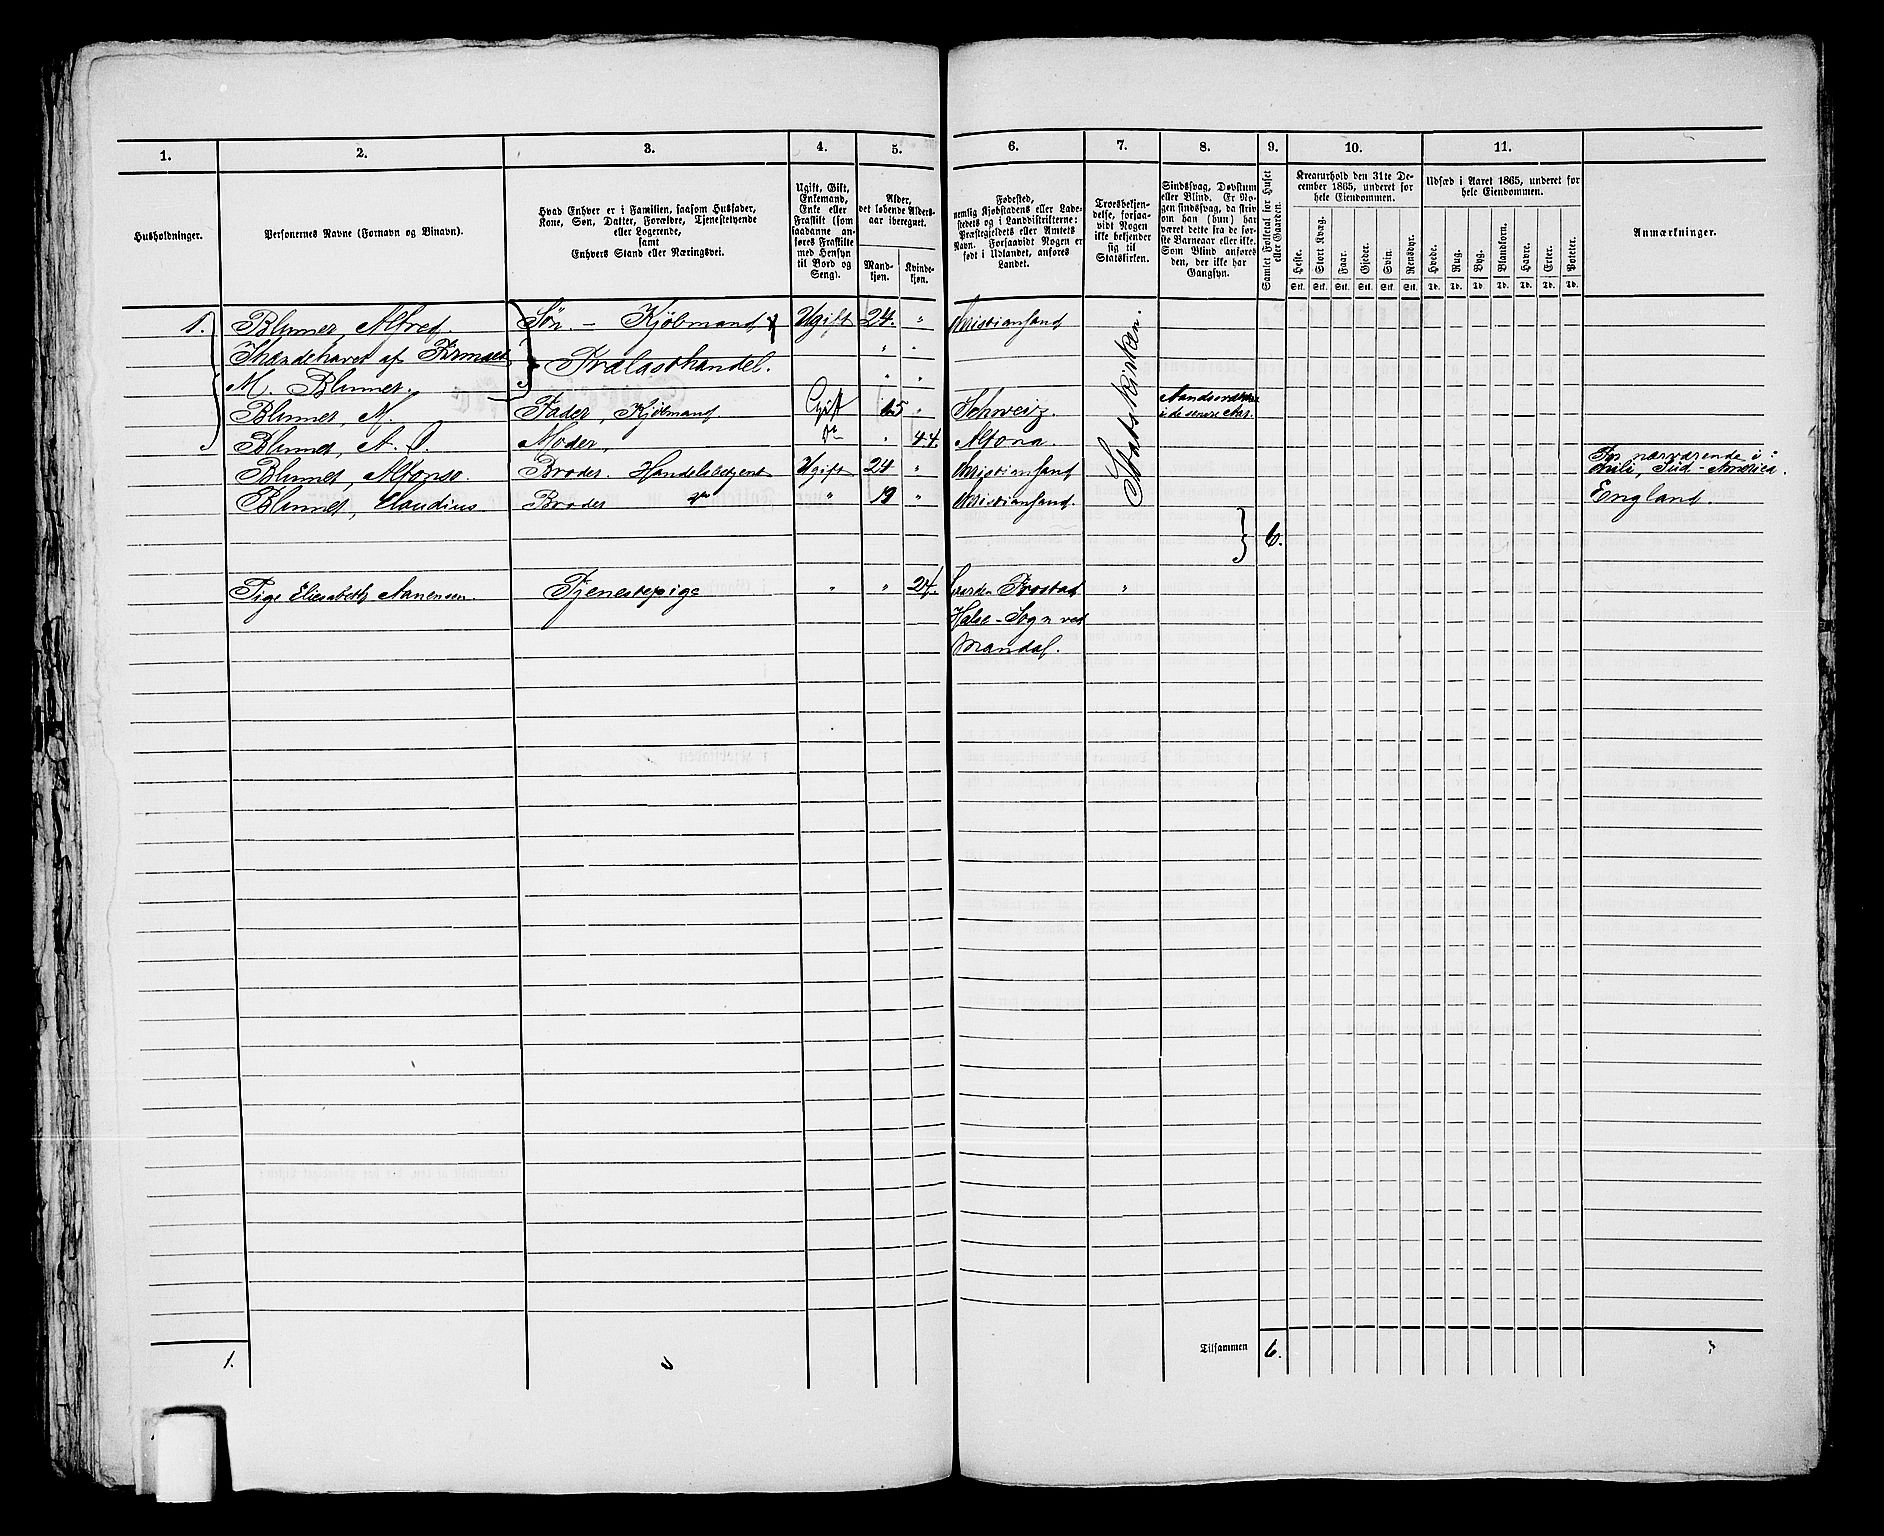 1. 2. 3. 4. 5. 6. 7. 8. 9. 10. 11.
Husholdninger.
Personernes Navne (Fornavn og Binavn).
Hvad Enhver er i Familien, saasom Husfader,
Kone, Søn, Datter, Forældre, Tjenestetyende
eller Logerende,
samt
Enhvers Stand eller Næringsvei.
Ugift, Gift,
Enkemand,
Enke eller
Fraskilt (som
saadanne an-
føres Fraskilte
med Hensyn
til Bord og
Seng).
Alder,
det løbende Alders-
aar iberegnet.
Mand-
kjøn.
Kvinde-
kjøn.
Fødested,
nemlig Kjøbstadens eller Lade-
stedets og i Landdistrikterne:
Præstegjeldets eller Amtets
Navn. Forsaavidt Nogen er
født i Udlandet, anføres
Landet.
Troesbekjen-
delse, forsaa-
vidt Nogen
ikke bekjender
sig til
Statskirken.
Sindssvag, Døvstum
eller Blind. Er No-
gen sindssvag, da skriv
om han (hun) har
været dette fra de før-
ste Barneaar eller ikke.
Som Blind anføres
den, der ikke har
Gangsyn.
Samlet Folketal for Huset
eller Gaarden.
Kreaturhold den 31te De-
cember 1865, underet for
hele Eiendommen.
Heste. Stort Kvæg. Faar. Gjeder. Svin. Rensdyr.
Stk. Stk. Stk. Stk. Stk. Stk.
Udsæd i Aaret 1865, underet for
hele Eiendommen.
Hvede. Rug. Byg. Blandkorn. Havre. Erter. Poteter.
Td. Td. Td. Td. Td. Td. Td.
Anmærkninger.
1. Blumer, Alfred. Søn. - Kjøbmand Ugift 24. " Christiansand
Ihændehaver af Firmaet " "
Trælasthandel.
M. Blumer. " "
Blumer, M. Fader, Kjøbmand Gift " Schweiz.
i de senere Aar.
Blumer, A. C. Moder, do " 44. Altona.
Blumer, Alfonso. Broder. Handelsbetjent Ugift 24 " Christiansand
For nærværende i
Chili, Syd-America.
Blumer, Claudius Broder do " 19 " Christiansand. England.
Statskirken.
6.
Pige Elisabeth Aanensen. Tjenestepige " " 24. Gaarden Frostad "
Halse-Sogn ved
Mandal.
1. Tilsammen 6.